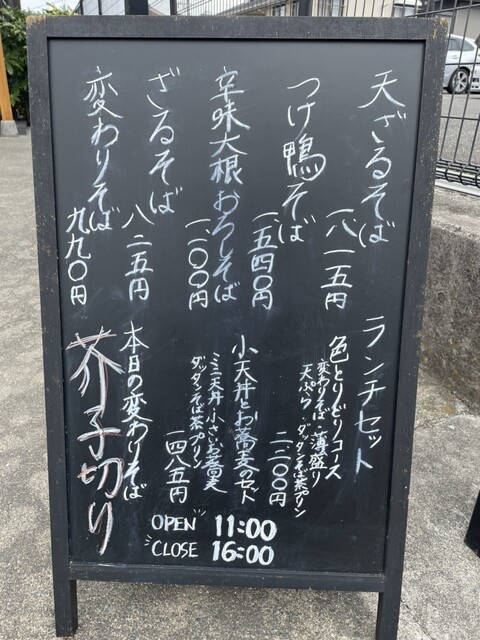 天ざるそば
一、八一五円
つけ鴨そば
一、五四〇円
辛味大根おろしそば
一、一〇〇円
ざるそば
八二五円
変わりそば
九九〇円
ランチセット
色とりどりコース
変わりそば・薄盛り
天ぷら・ダッタンそば茶プリン
二、二〇〇円
小天丼とお蕎麦のセット
ミニ天丼・小さいお蕎麦
ダッタンそば茶プリン
一四八五円
本日の変わりそば
芥子切り
OPEN 11:00
CLOSE 16:00